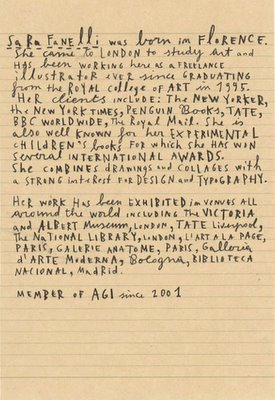 SaRa FaNElli was born im FLORENCE.
She came to LONDON to study Art and
Has been working here as a FREELANCE
illustrator ever since GRADUATING
from the ROYAL College of ART in 1995.
Her clients include: The NEW YORKER,
the New YORK TIMES, PENGUIN Books, TATE,
BBC WORLDWIDE, The Royal Mail. She is
also well known for her EXPERIMENTAL
CHILDREN'S books FOR which she HAS WON
Several INTERNATIONAL AWARDS.
She COMBINES DRAWINGS and COLLAGES with
a STRONG intERest FOR DESIGN and TYPOGRAPHY.
HER WORK HAS been EXHIBITED in VENUES ALL
around the world INCLUDING The VICTORIA
and ALBERT MUSEUM, LONDON, TATE Liverpool,
The NATIONAL LIBRARY, LONDON, L'ART A LA PAGE,
PARIS, GALERIE ANATOME, PARIS, Galleria
d'ARTE MODERNA, Bologna, BIBLIOTECA
NACIONAL, Madrid.
MEMBER OF AGI since 2001